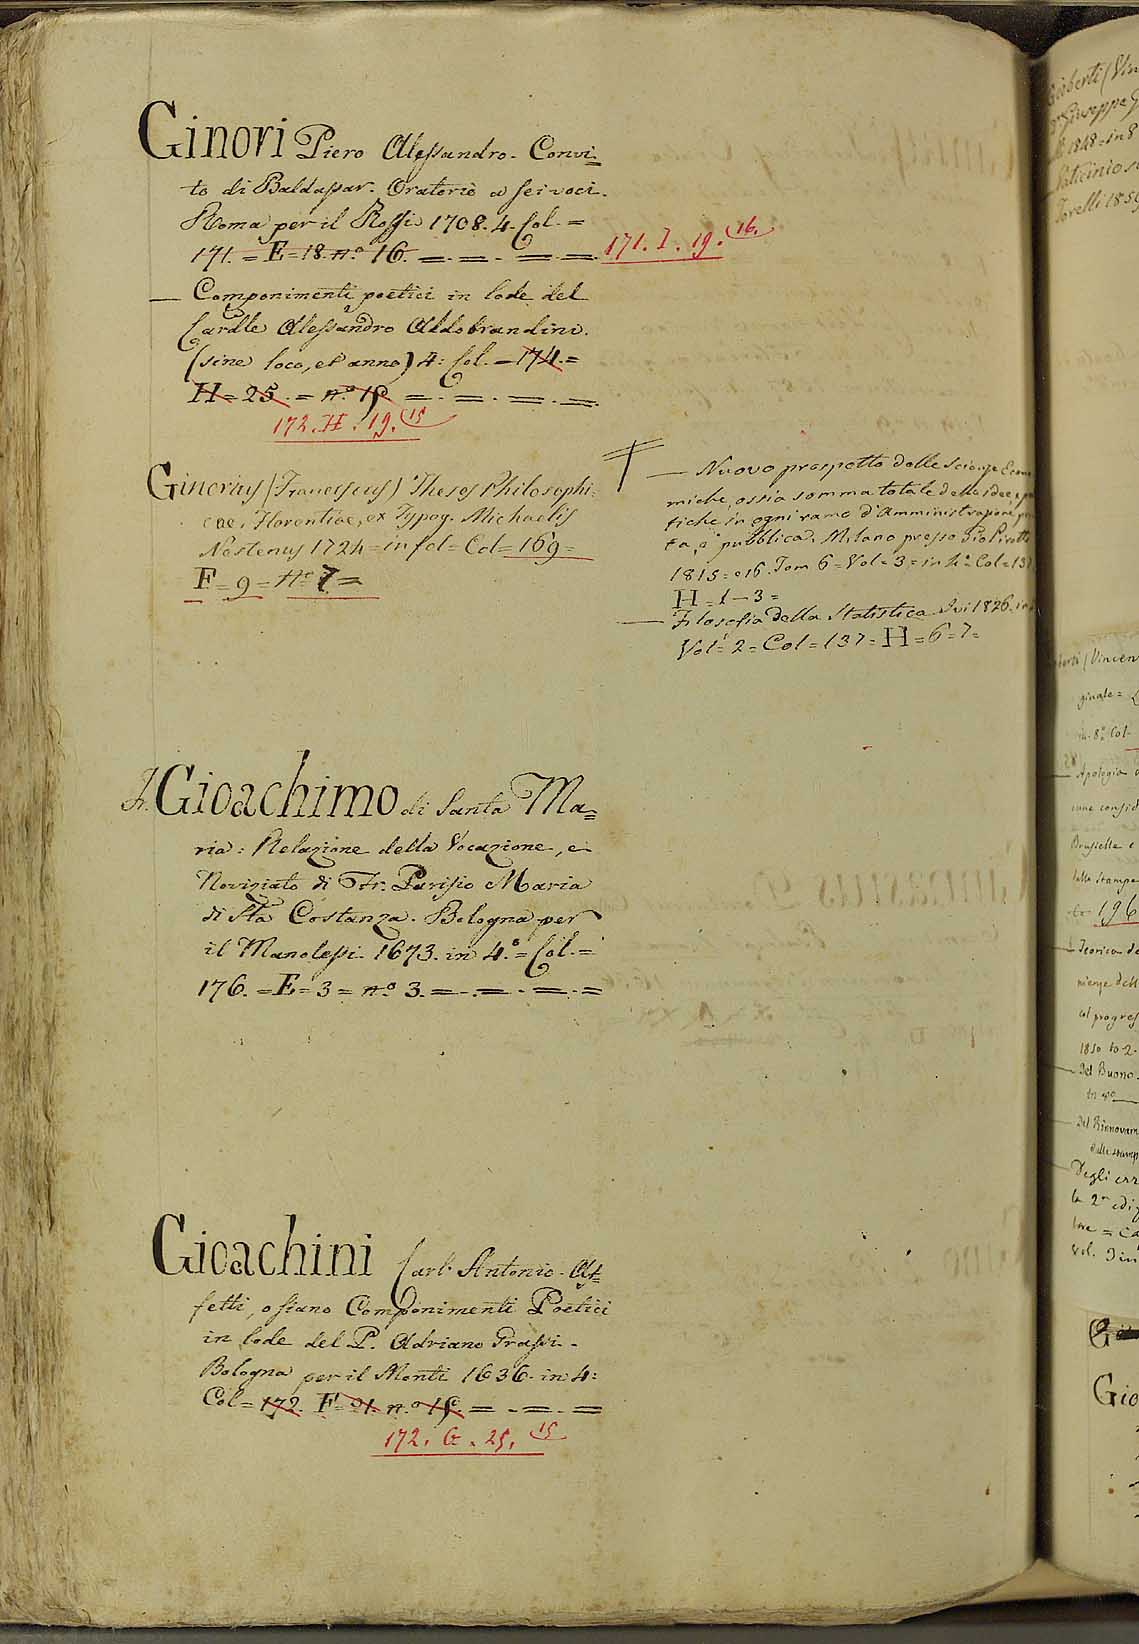 Ginori Piero Alessandro. Convi=
to di Baldassar. Oratorio a sei voci.
Roma per il Rossi 1708. 4. Col. =
171. = E = 18. n.º 16. = = . = =
171. I. 19. 16.
— Componimenti poetici in lode del
Cardle Alessandro Aldobrandini.
(sine loco, et anno) 4: Col. = 174. =
H = 25. = n.º 15 = . = . = . =
172. H. 19. 15
Ginorius (Franciscus) Theses Philosophi=
cae, Florentiae, ex Typog. Michaelis
Nestenus 1724 = in fol = Col = 169 =
F = 9 = Nº 7 =
— Nuovo prospetto delle Scienze Econo
miche, ossia somma totale delle idee,
tiche in ogni ramo d'Amministrazione
ta, e pubblica. Milano presso Pirotta
1815 = e 16. Tom 6 = Vol = 3 = in 4º Col = 137
H = 1 – 3 =
— Filosofia della Statistica Ivi 1826. in
Vol = 2 = Col = 137 = H = 6 = 7 =
Fr. Gioachimo di Santa Ma=
ria: Relazione della Vocazione, e
Noviziato di Fr. Parisio Maria
di Sta Costanza. Bologna per
il Manolessi. 1673. in 4.º = Col. =
176. = E = 3 = nº 3. = . = . = . =
Gioachini Carl' Antonio. Af=
fetti, o siano Componimenti Poetici
in lode del P. Adriano Grassi.
Bologna per il Monti 1636. in 4:
Col = 172. F = 21. n.º 15. = . = . =
172. G. 25. 15
Gioberti (Vin
Giuseppe
1848 = in 8
Vaticinio
Torelli 1859
(Vincen
ginale =
in 8º Col.
Apologia
cune consid
Brusselle e
dalle stampe
to 196
— Teorica de
mienze dell
col progres
1850 to 2.
— Del Buono
in 8º
Del Rinnovam
dalle stamp
— Degli err
la 2ª ediz
vol.
Gio